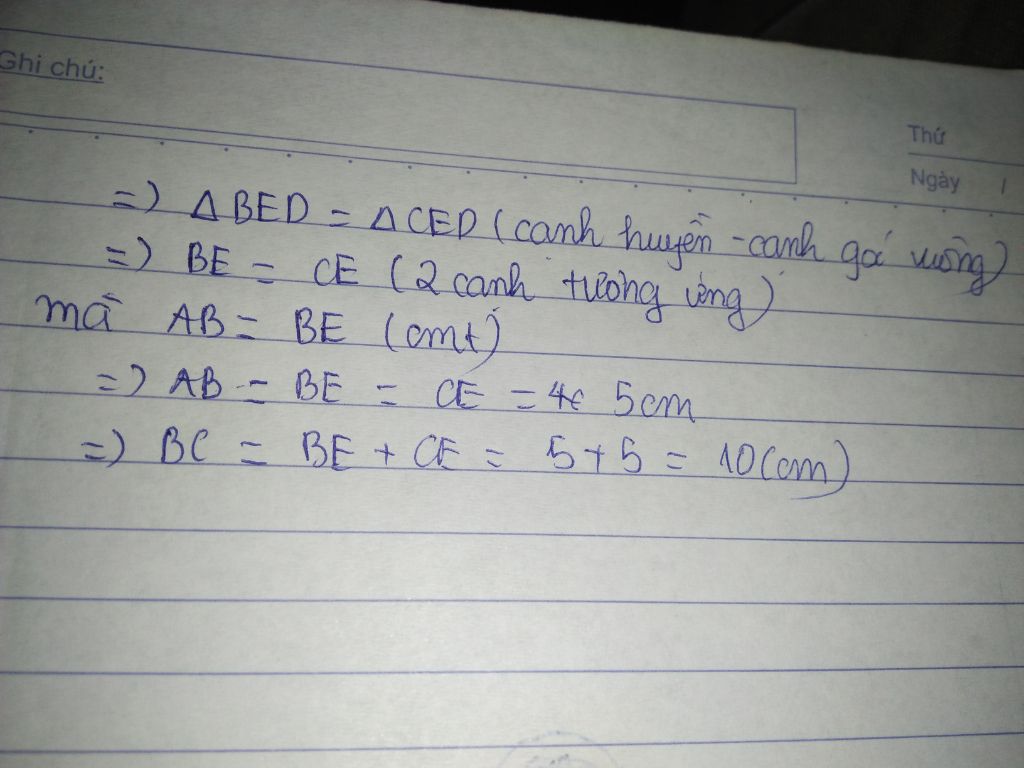 Ghi chú:
Thứ
Ngày /
=) Δ BED = Δ CED (canh huyền - canh goć vuông)
=) BE = CE (2 canh tương ứng)
mà AB = BE (cmt)
=) AB = BE = CE = 5cm
=) BC = BE + CE = 5 + 5 = 10 (cm)